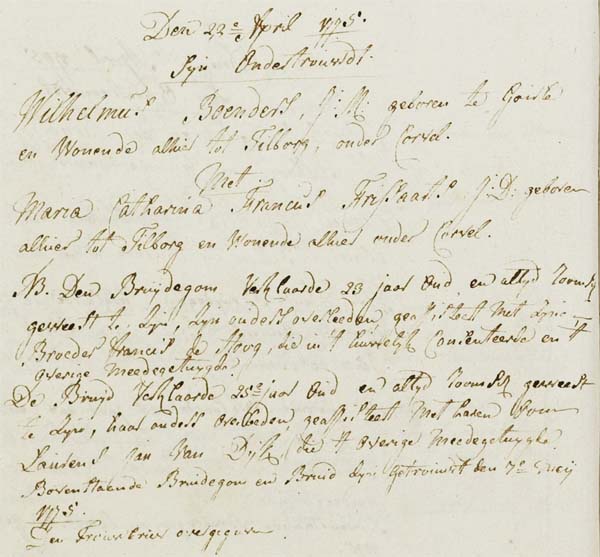 Den 22e April 1775.
Sijn Ondertrouwdt.
Wilhelmus Boenders, J:M: geboren te Goirle
en Wonende alhier tot Tilborg, onder Corvel.
Met
Maria Catharina Francus Frissaarts J:D: geboren
alhier tot Tilborg en Wonende alhier onder Corvel.
NB. Den Bruydegom Verklaarde 23 jaar Oud en altyd rooms
geweest te Zijn, Zijn ouders overleeden geassisteert Met Zijn
Broeder francis de Hoog, die in 't huwelyk Consenteerde en 't
overige Meedegetuygde
De Bruyd Verklaarde 25 jaar Oud en altyd rooms geweest
te Zijn, haar ouders Overleeden, geassisteert Met haren Oom
Laurens Jan Van Dijk, die 't Overige Meedegetuygde.
Bovenstaende Bruidegom en Bruid Zijn getrouwt den 7e
1775.
Den Trouwbrief overgegeven.